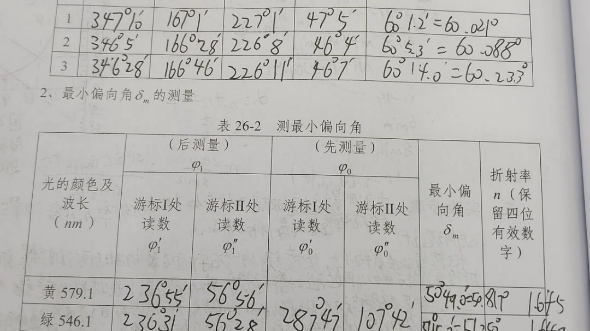 1 347°10′ 167°1′ 227°1′ 47°5′ 60°1.2′=60.021°
2 346°5′ 166°28′ 226°8′ 46°4′ 60°5.3′=60.088°
3 346°28′ 166°46′ 226°11′ 46°7′ 60°14.0′=60.233°
2、最小偏向角δm的测量
表 26-2 测最小偏向角
光的颜色及波长（nm） （后测量）φ1 （先测量）φ0 最小偏向角δm 折射率n（保留四位有效数字）
游标I处读数φ1′ 游标II处读数φ1″ 游标I处读数φ0′ 游标II处读数φ0″
黄 579.1 236°55′ 56°56′ 50°49.0′=50.817° 1.645
绿 546.1 236°31′ 56°28′ 287°47′ 107°42′